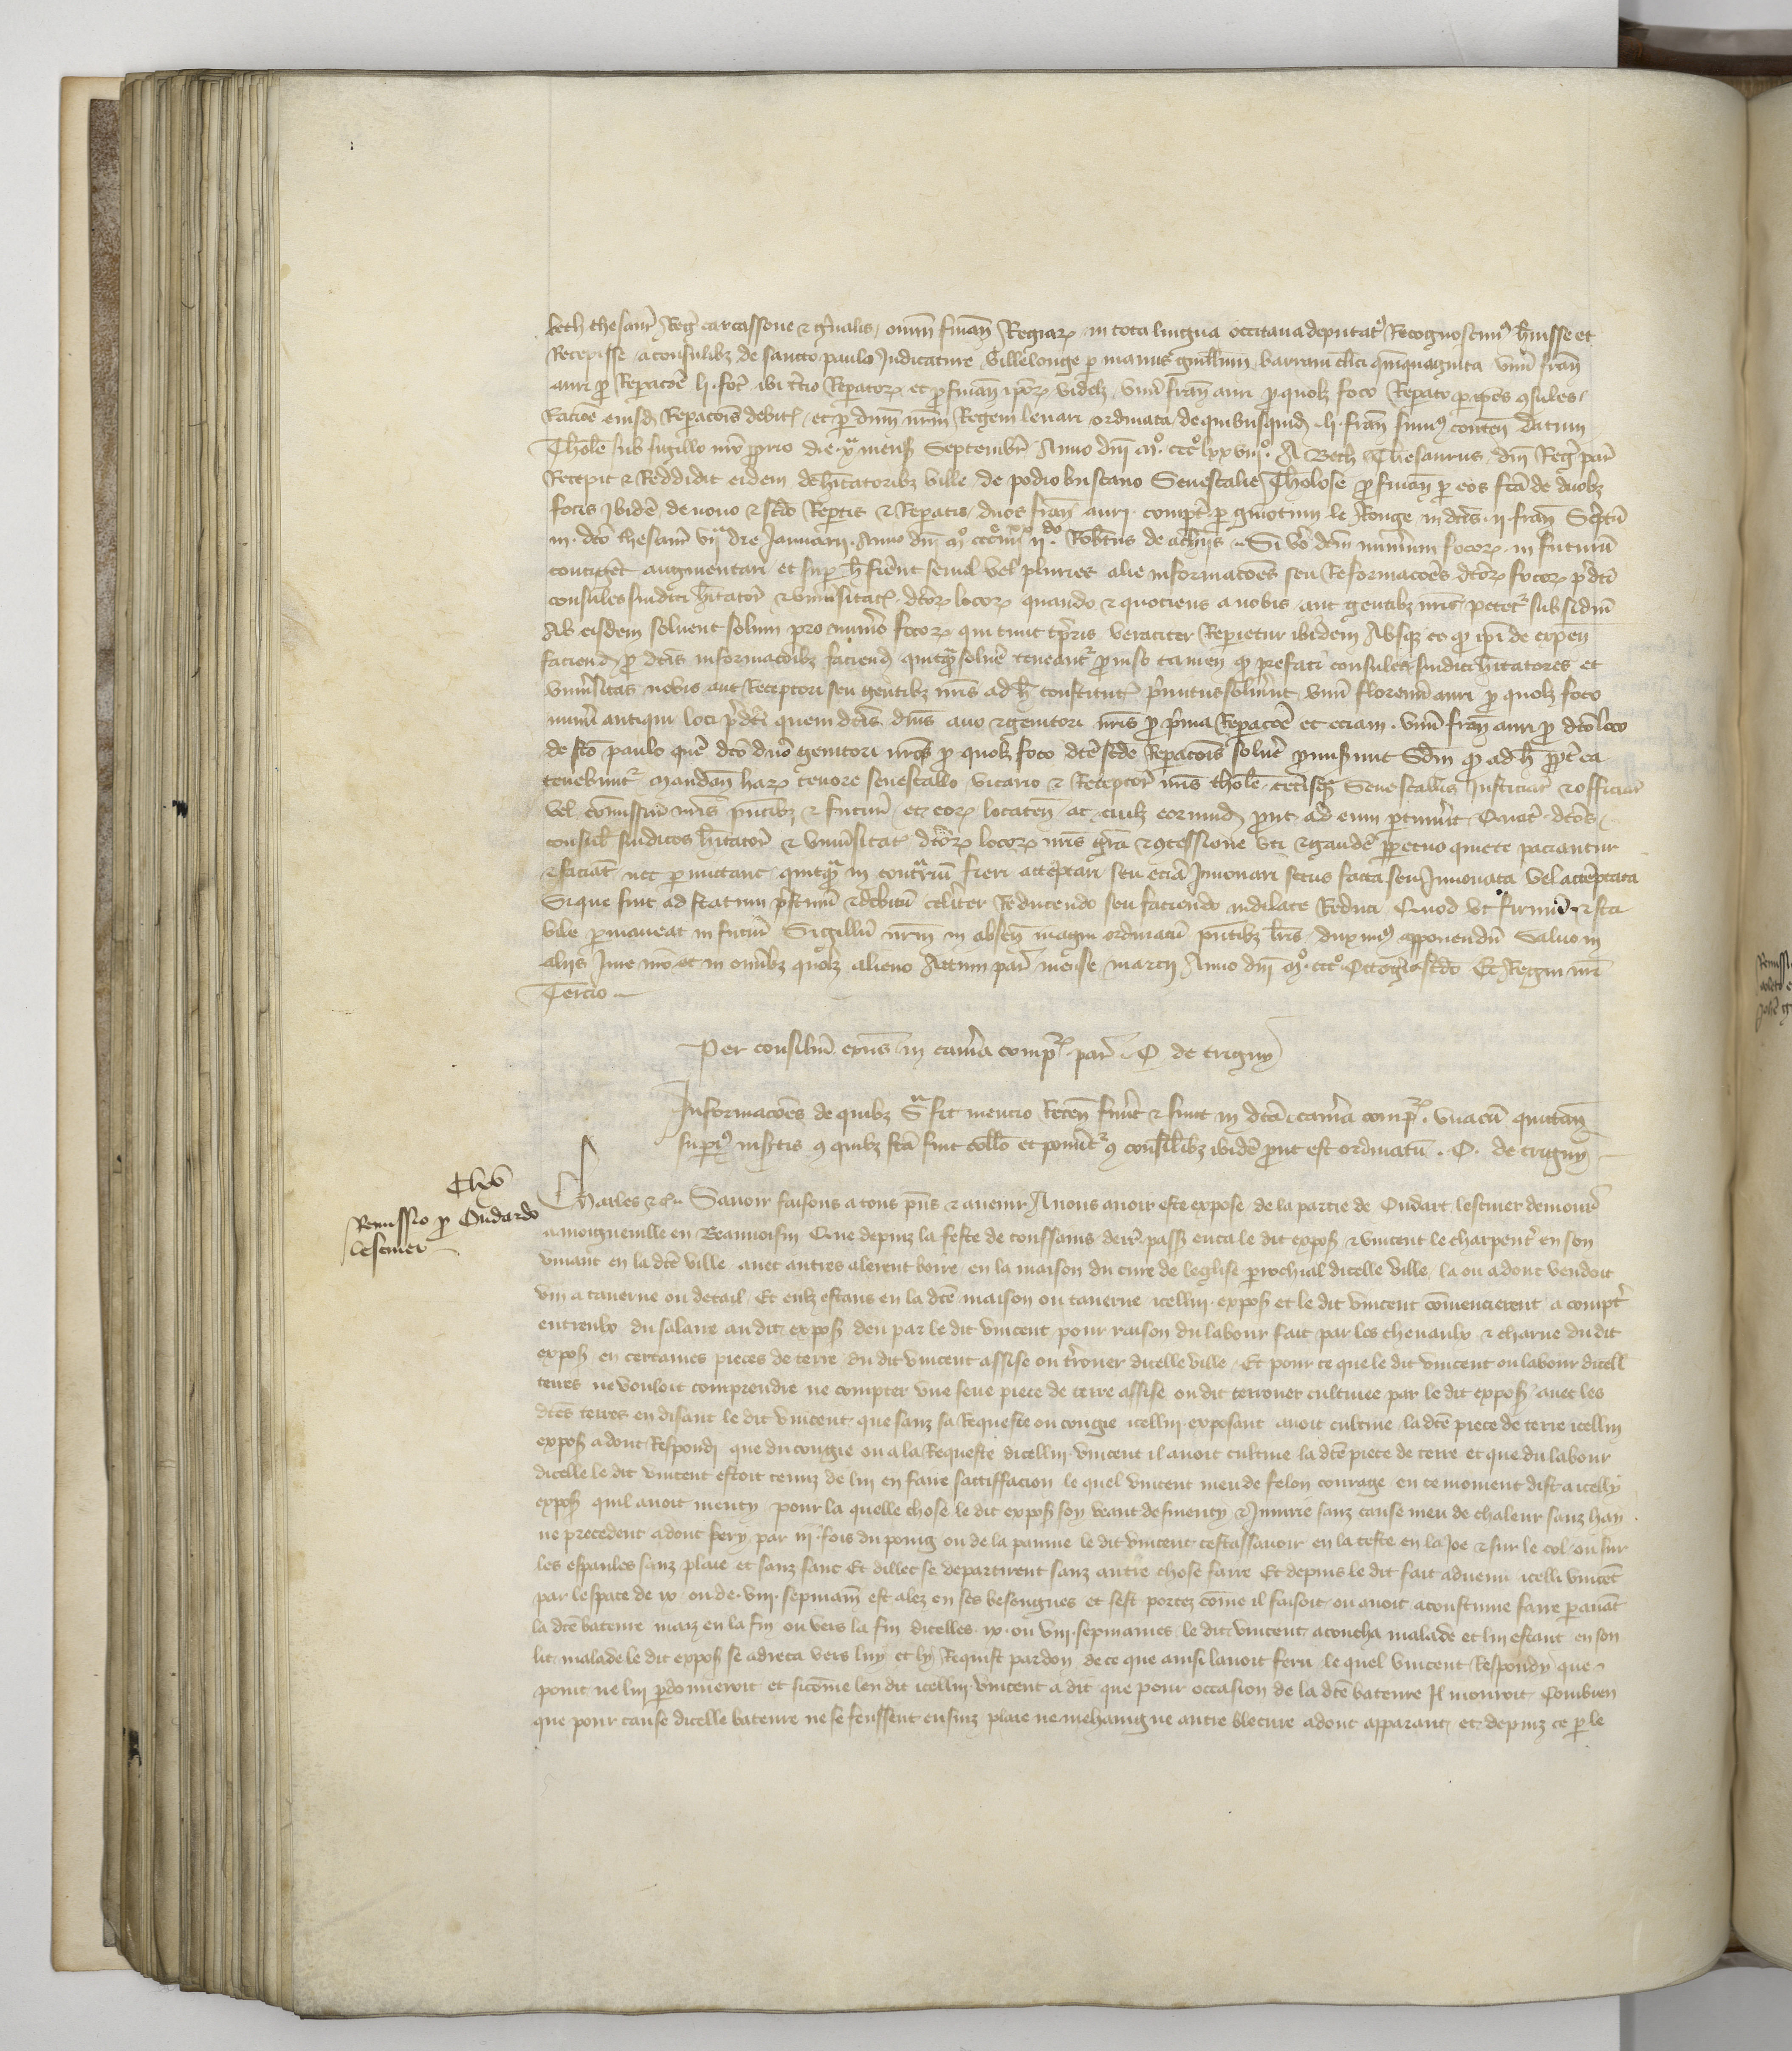 beth thesaur̃ Reg̃ carcassone ⁊ gn̄alis, omniū finan̄ Regiarꝝ in tota lingua occitana deputatꝰ Recognoscimꝰ h̄uisse et
Recepisse a consulibꝫ de sancto paulo Judicature Villelonge ꝑ manus guill̄mi barrani cl̄ici quinquaginta vnū fran̄
auri ꝓ Reparac̄oē lj. foc̄ ibi t̄cio Reparatorꝝ et ꝓ finan̄ ip̄orꝝ videlꝫ vnū fran̄ auri ꝓ quolꝫ foco Reparato ꝑ ip̄os ꝯsules
Rac̄ioē eiusd̄ Reparac̄ois debitꝭ, et ꝑ dn̄m nr̄m Regem leuari ordinata, de quibusquid̄ lj. fran̄ sumꝰ conten̄ datum
Thol̄e sub sigillo nr̄o ꝓprio die xᵃ mens̄ Septembr̄ Anno dn̄i mᵒ. cccᵒ lxxviijᵒ. A Beth Thesaurus dn̄i Reg̃ par̄
Recepit ⁊ Reddidit eidem de h̄itatoribꝫ ville de podio buscano Senescalie Tholose ꝓ finan̄ ꝑ eos fc̄a de duobꝫ
focis ibidē de nouo ⁊ sc̄do Reꝑtis ⁊ Reparatis, duos fran̄ auri. compt̄ ꝑ guiotum le Konge in dc̄is. ij. fran̄ Sc̄ptū
in dc̄o thesaur̄ vijᵃ die Januarij. Anno dn̄i mᵒ cccᵒ iiijˣˣ ijᵈᵒ. Rob̄tus de achijs. Si vo dc̄m numerum focorꝝ in futurū
contig̃et augmentari et suꝑ h̄ fieret semel vel pluries alie informac̄oēs seu Reformac̄oēs dc̄orꝝ focorꝝ p̄dc̄i
consules sindici h̄itator̄ ⁊ vniu̇sitatꝭ dc̄orꝝ locorꝝ quando ⁊ quociens a nobis aut gentibꝫ nr̄is petet̄ subsidiū
Ab eisdem soluent solum pro numo focorꝝ qui tunc tp̄ris veraciter Reperietur ibidem Absqꝫ eo qꝫ ip̄i de expen̄
faciend̄ ꝓ dc̄is informac̄oibꝫ faciend̄ quitqᵃ soluē teneant̄ ꝓuiso tamen qꝫ prefati consules sindici h̄itatores et
vniu̇sitas nobis aut Receptori seu gentibꝫ nr̄is ad h̄ constitutꝭ p̄mitus soluerint vnū florenū auri ꝓ quolꝫ foco
num̄i antiqui loci p̄dc̄i quem dc̄is dn̄is auo ⁊ genitori nr̄is ꝓ p̄ma Reparac̄oē et eciam. vnū fran̄ auri ꝓ dc̄o loco
de sc̄o paulo quē dc̄o dn̄o genitori nr̄o ꝓ quolꝫ foco dc̄e sc̄de Reparac̄ois soluē ꝓmiserunt Sc̄dm qꝫ ad h̄ ꝓpt̄ ea
tenebunt̄ Mandan̄ harꝝ tenore senescallo vicario ⁊ Receptor̄ nr̄is thol̄e cetisqꝫ Senescallis Justiciar̄ ⁊ officiar̄
vel com̄issar̄ nr̄is pn̄tibꝫ ⁊ futur̄ et eorꝝ locaten̄ ac cuilꝫ eorumd̄ prout ad eum ptinu̇it Quat̄ dc̄os
consul̄ sindicos h̄itator̄ ⁊ vniu̇sitatꝭ dc̄orꝝ locorꝝ nr̄is gr̄a ⁊ ꝯcessione vti ⁊ gaudē ꝑpetuo quiete paciantur
⁊ faciāt nec ꝑmictant quitqᵃ in contrariū fieri attēptari seu eciā Innouari secus facta seu Innouata vel attēptata
Sique sint ad statum p̄stinū ⁊ debitū celiter Reducendo seu faciendo indilate Reduci Quod vt firmū ⁊ sta
bile ꝑmaneat in futur̄ Sigillū nr̄m in absen̄ magni ordinatū pn̄tibꝫ lr̄is duximꝰ apponendū Saluo in
alijs Jure nr̄o et in om̄ibꝫ quolꝫ alieno Actum par̄ mense marcij Anno dn̄i mᵒ. cccᵒ. Octogēsi sc̄do Et Regni nr̄i
Tercio
Per consiliū exn̄s in cam̄a compꝭ par̄. O de trigny
Informac̄oēs de quibꝫ Sᵃ fit mencio Recen̄ fuerūt ⁊ sunt in dc̄a cam̄a compꝭ. vnacū quittan̄
supiꝰ insertis ꝯ quibꝫ fc̄a fuit coll̄o et ponit̄ ꝯ consil̄ibꝫ ibidē prout est ordinatū. O. de trigny
Chl̄s
Remissio ꝓ Oudardo
lescuier
Charles ⁊c̄. Sauoir faisons a tous pn̄s ⁊ auenir A nous auoir este expose de la partie de Oudart lescuier demour̄
a moigneuille en Beauuoisin Que depuiz la feste de toussains derr̄ pass̄ enca le dit expos̄ ⁊ vincent le charpent̄ en son
viuant en la dc̄e ville auec autres alerent boire en la maison du cure de leglise parochial dicelle ville, la ou adonc vendoit
vin a tauerne ou detail, Et eulz estans en la dc̄e maison ou tauerne icellui. expos̄ et le dit vincent com̄encierent a compt̄
entreulx du salaire audit expos̄ deu par le dit vincent, pour raison du labour fait par les cheuaulx ⁊ charue du dit
expos̄ en certaines pieces de terre du dit vincent assise ou t̄rouer dicelle ville, Et pour ce que le dit vincent ou labour dicell̄
terres ne vouloit comprendre ne compter vne seue piece de terre assise ou dit terrouer cultiuee par le dit expos̄ auec les
dc̄es terres en disant le dit vincent que sanz sa Requeste ou congie icellui. exposant auoit cultiue la dc̄e piece de terre icellui
expos̄ adont Respondi que du congie ou a la Requeste dicellui vincent il auoit cultiue la dc̄e piece de terre et que du labour
dicelle le dit vincent estoit tenuz de lui en faire sattiffacion le quel vincent meu de felon courage en ce moment dist a icelly
expos̄ quil auoit menty pour la quelle chose le dit expos̄ soy veant desmenty ⁊ Jniurie sanz cause meu de chaleur sanz hay
ne precedent adont fery par iij. fois du poing ou de la paume le dit vincent cestassauoir en la teste en la Joe ⁊ sur le col ou sur
les espaules sanz plaie et sanz sanc Et dillec se departirent sanz autre chose faire Et depuis le dit fait aduenu icelli vincēt
par lespace de ix ou de. viij. sepmain̄ est alez en ses besongnes et sest portez com̄e il faisoit ou auoit acoustume faire ꝑauāt
la dc̄e bateure maiz en la fin ou vers la fin dicelles. ix. ou viij. sepmaines le dit vincent acoucha malade et lui estant en son
lit malade le dit expos̄ se adreca vers luy et ly Requist pardon de ce que ainsi lauoit feru le quel vincent Respondy que
point ne lui ꝑdonneroit et sicom̄e len dit icellui vincent a dit que pour occasion de la dc̄e bateure Il mouroit Combien
que pour cause dicelle bateure ne se feussent ensuiz plaie ne mehaing ne autre blecure adont apparant, et depuiz ce ꝑ le